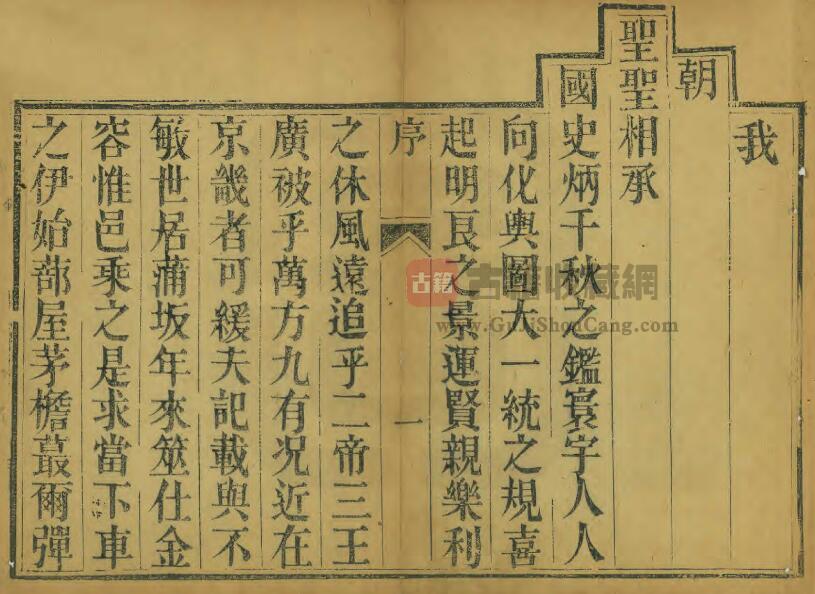 我
朝
聖聖相承
國史炳千秋之鑑寰宇人人
向化輿圖大一統之規喜
起明良之景運賢親樂利
序
一
之休風遠追乎二帝三王
廣被乎萬方九有况近在
京畿者可緩夫記載與不
敏世居蒲坂年來筮仕金
容惟邑乘之是求當下車
之伊始蔀屋茅檐蕞爾彈
古籍
古籍收藏網
www.GuJiShouCang.com